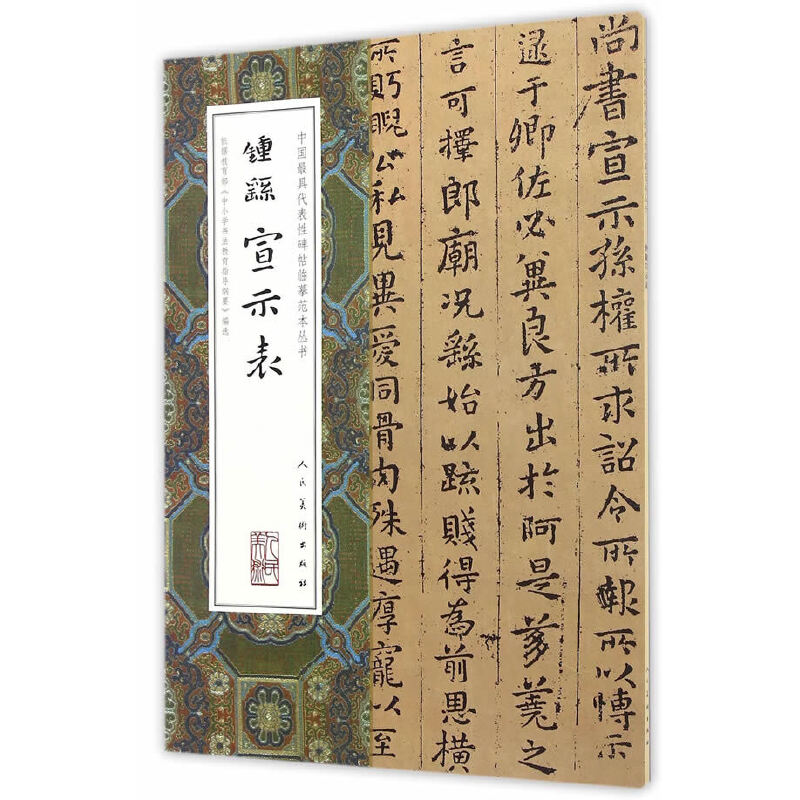 尚書宣示孫權所求詔令所報所以博示
逮于卿佐必冀良方出於阿是芻蕘之
言可擇郎廟況繇始以疏賤得為前恩橫
所眄睨公私見異愛同骨肉殊遇厚寵以至
中国最具代表性碑帖临摹范本丛书
鍾繇 宣示表
依据教育部《中小学书法教育指导纲要》编选
人民美術出版社
人民美術